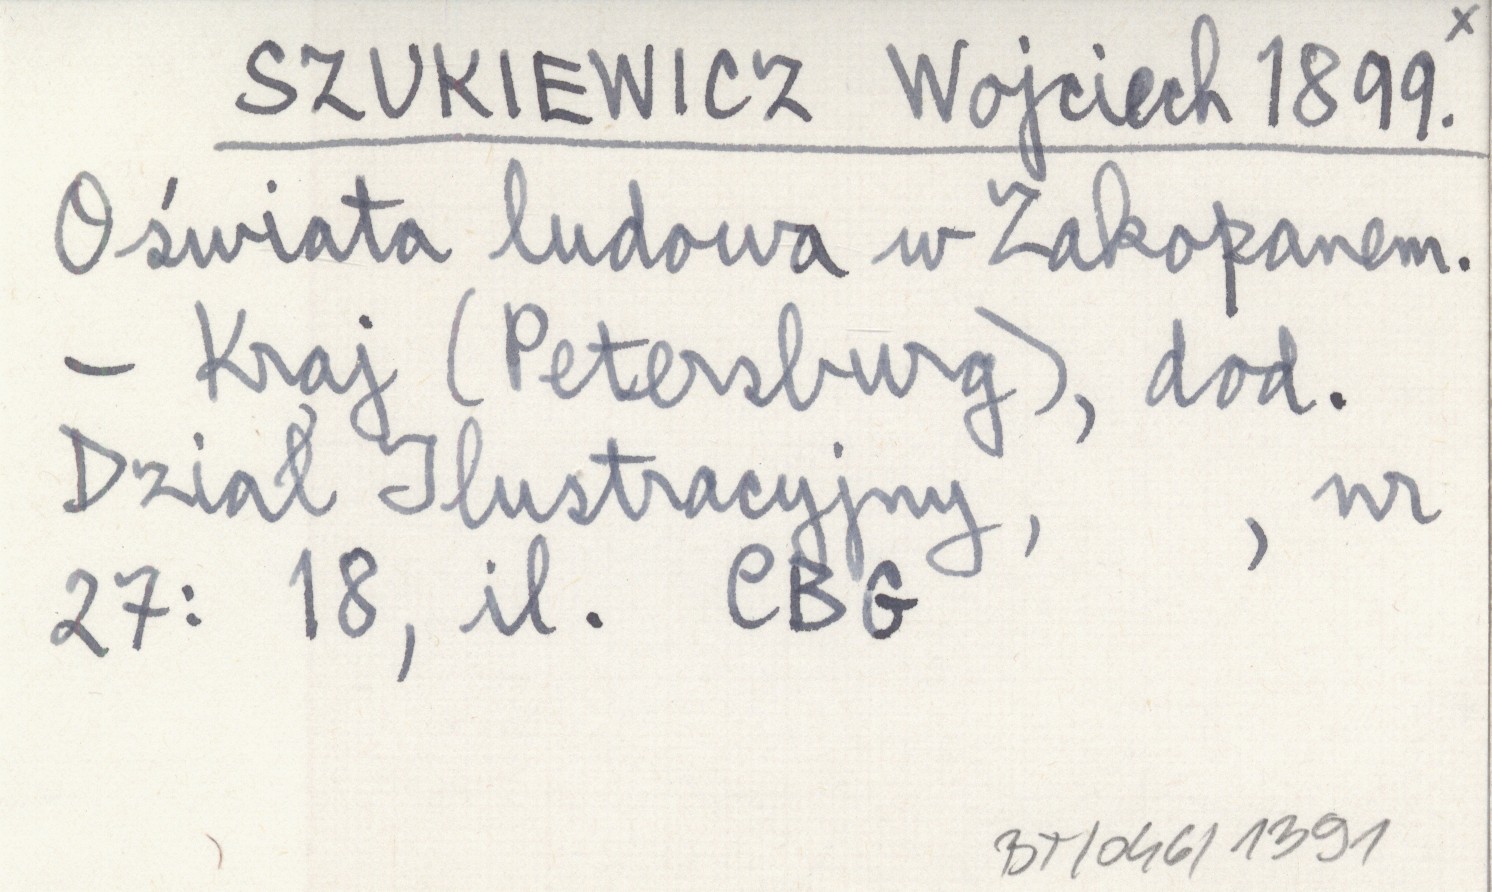 SZUKIEWICZ Wojciech 1899.x
Oświata ludowa w Zakopanem.
– Kraj (Petersburg), dod.
Dział Ilustracyjny, , nr
27: 18, il. CBG
BT/046/1391